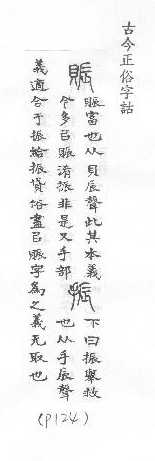 古今正俗字詁
賑
賑富也从貝辰聲此其本義
今多㠯賑淆振非是又手部
振
下曰振舉救
也从手辰聲
義適合于振給振貸俗盡㠯賑字為之義无取也
(P124)